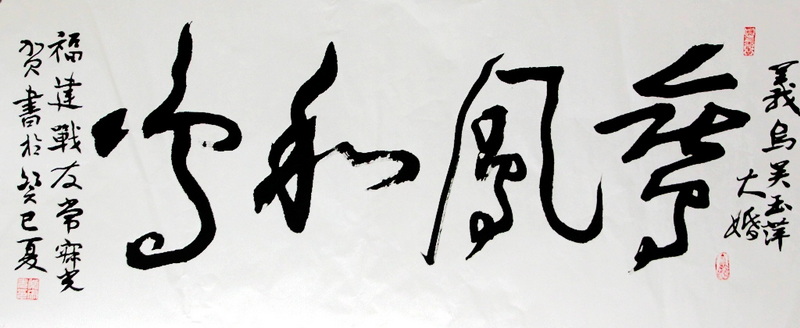 義烏吴玉萍
大婚
鸞鳳和鳴
福建戰友常寐光
賀書於癸巳夏